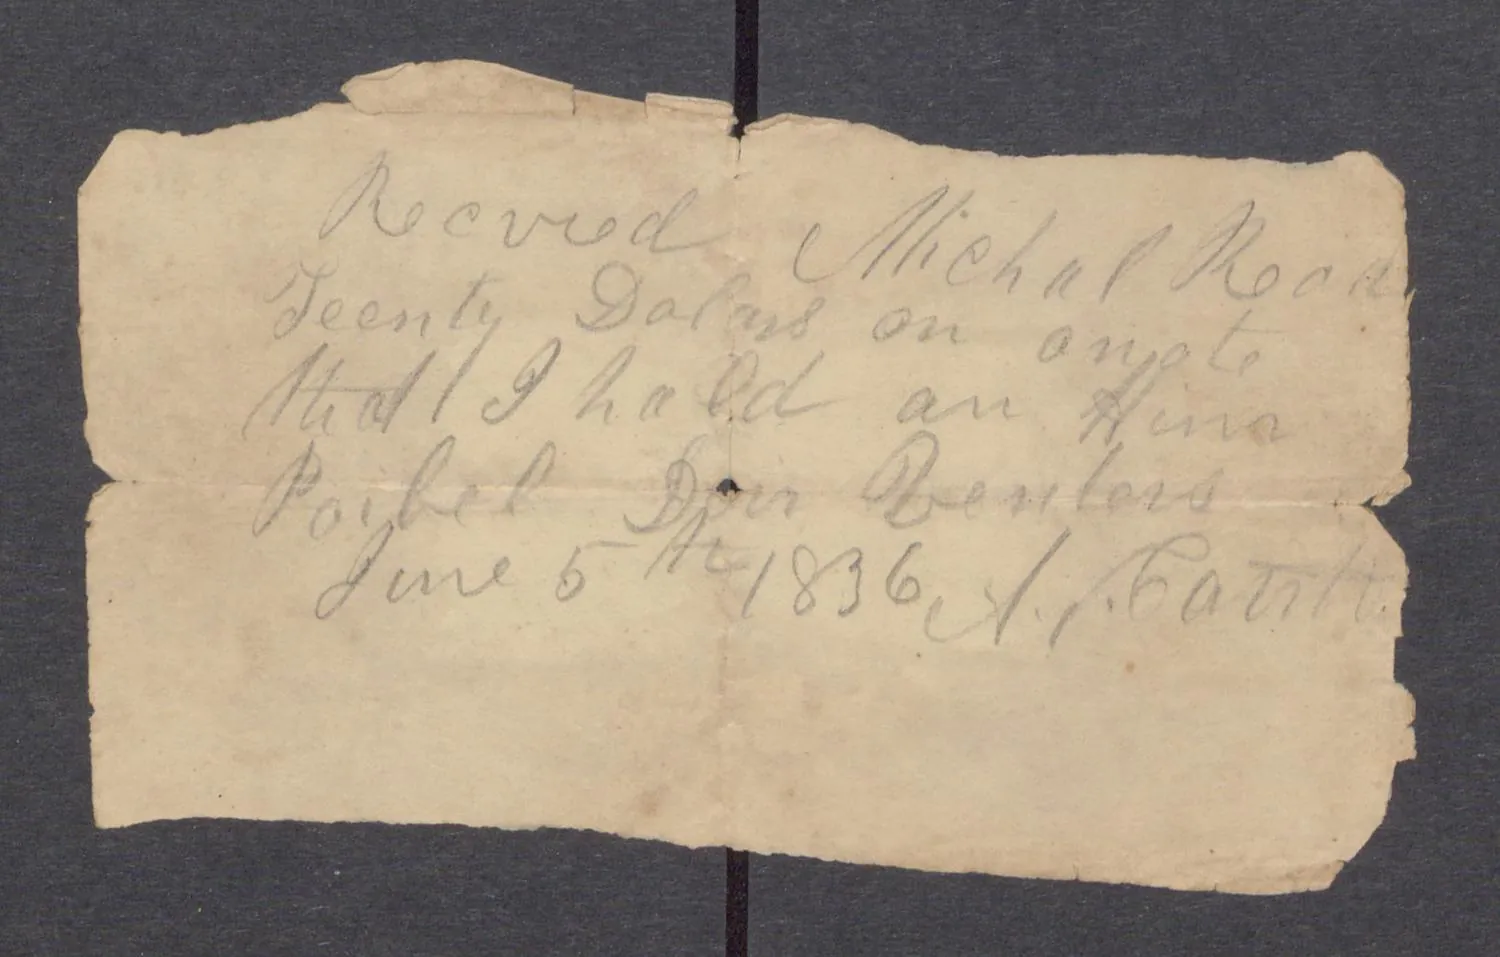 Recvied Michal Read
Teenty Dolars on anote
that I hald an Him
Paibel Don Renters
June 5th 1836